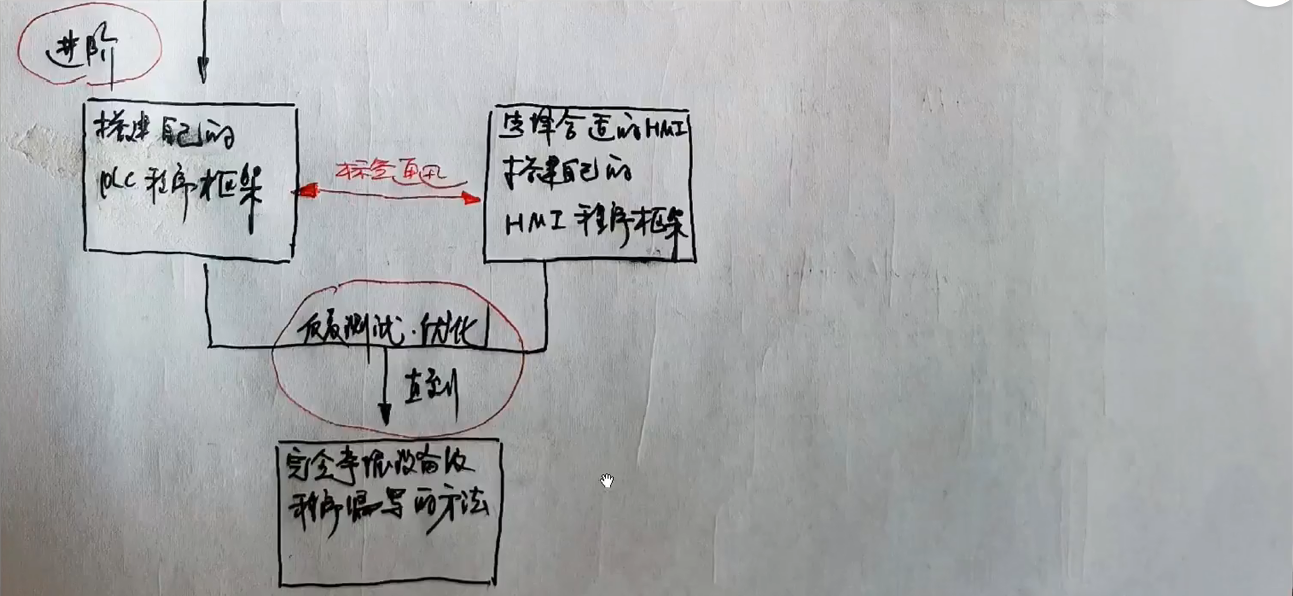 进阶
搭建自己的
PLC 程序框架
标签通讯
选择合适的HMI
搭建自己的
HMI 程序框架
反复测试.优化
直到
完全掌握设备级
程序编写的方法